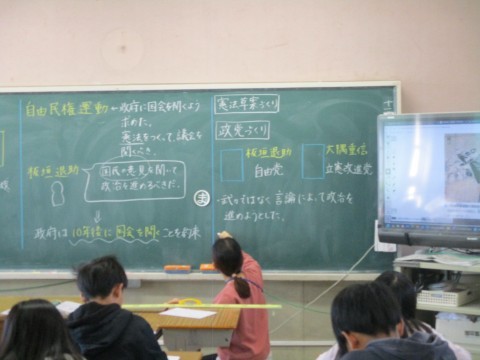 自由民権運動←政府に国会を開くよう
求めた。
憲法をつくって、議会を
開くべき。
板垣退助
国民の意見を聞いて
政治を進めるべきだ。
政府は10年後に国会を開くことを約束
憲法草案づくり
政党づくり
板垣退助
自由党
大隈重信
立憲改進党
ま
武力ではなく言論によって政治を
進めようとした。